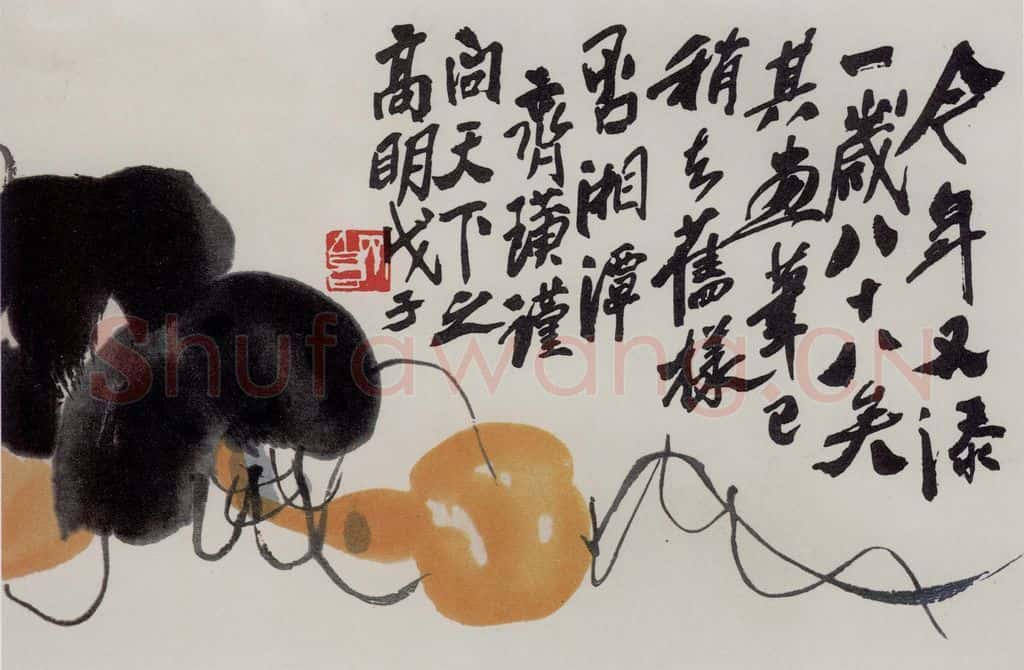 今年又添
一歲八十八矣
其畫筆已
稍去舊樣
否湘潭
齊璜謹
問天下之
高明戊子
Shufawang.CN